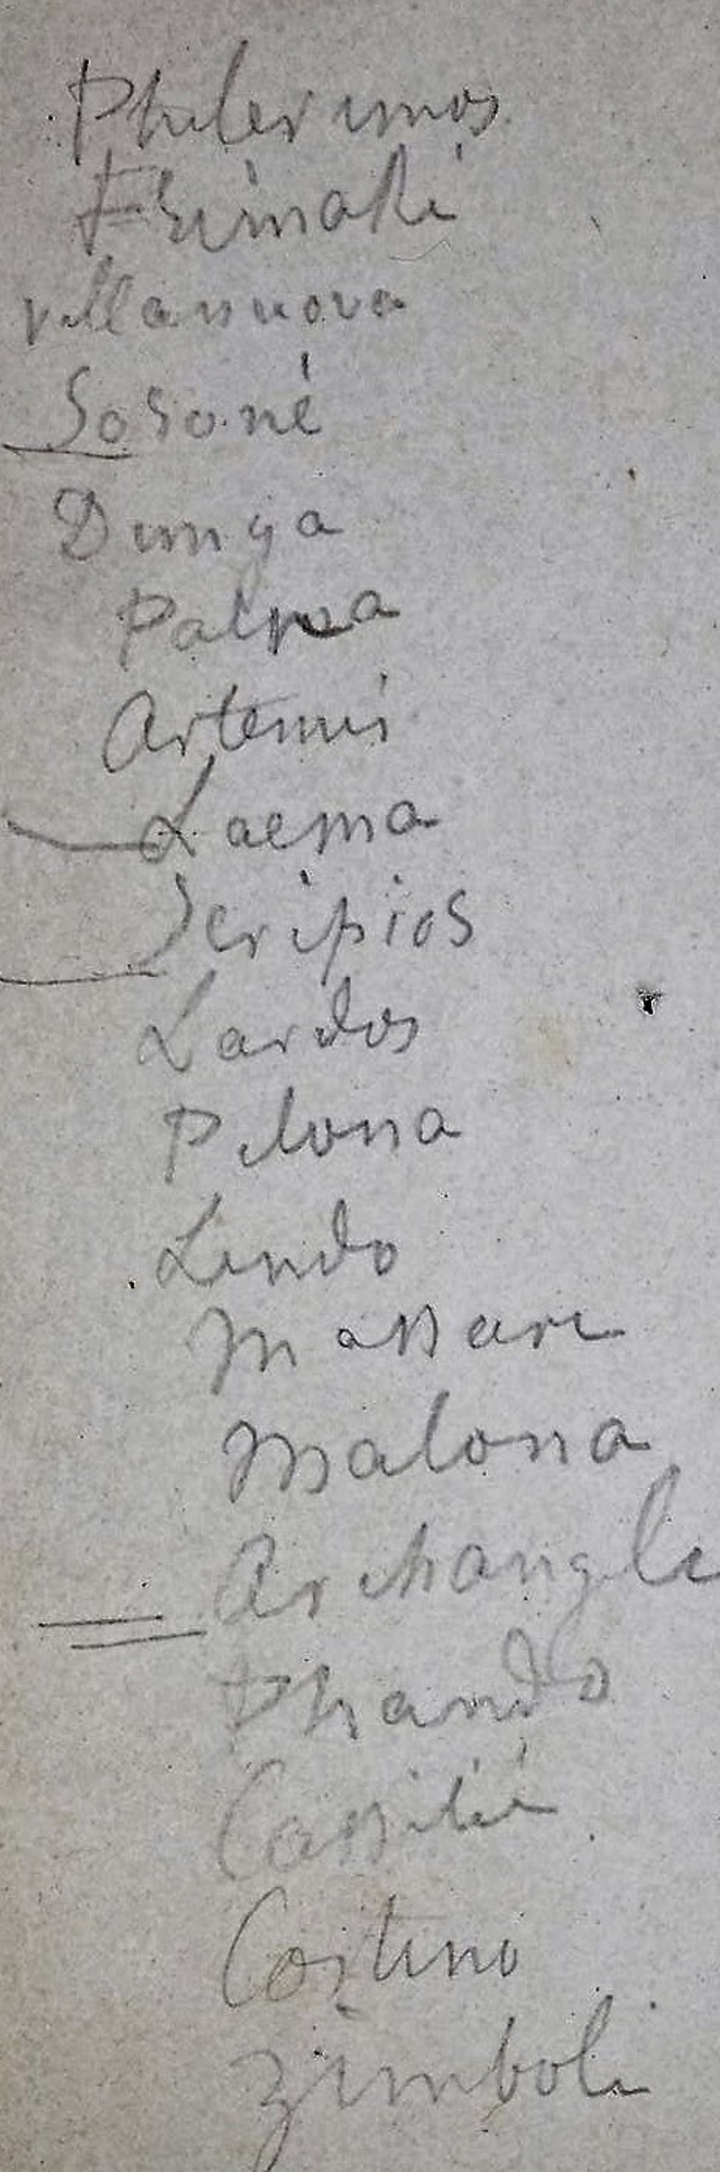 Philerimos
Trimaki
Villannova
Sosoné
Dimya
Palma
Artemis
Laema
Seripios
Lardos
Pilona
Lindo
Massari
Malona
Archangeli
Phando
Cassilié
Costino
Zimboli